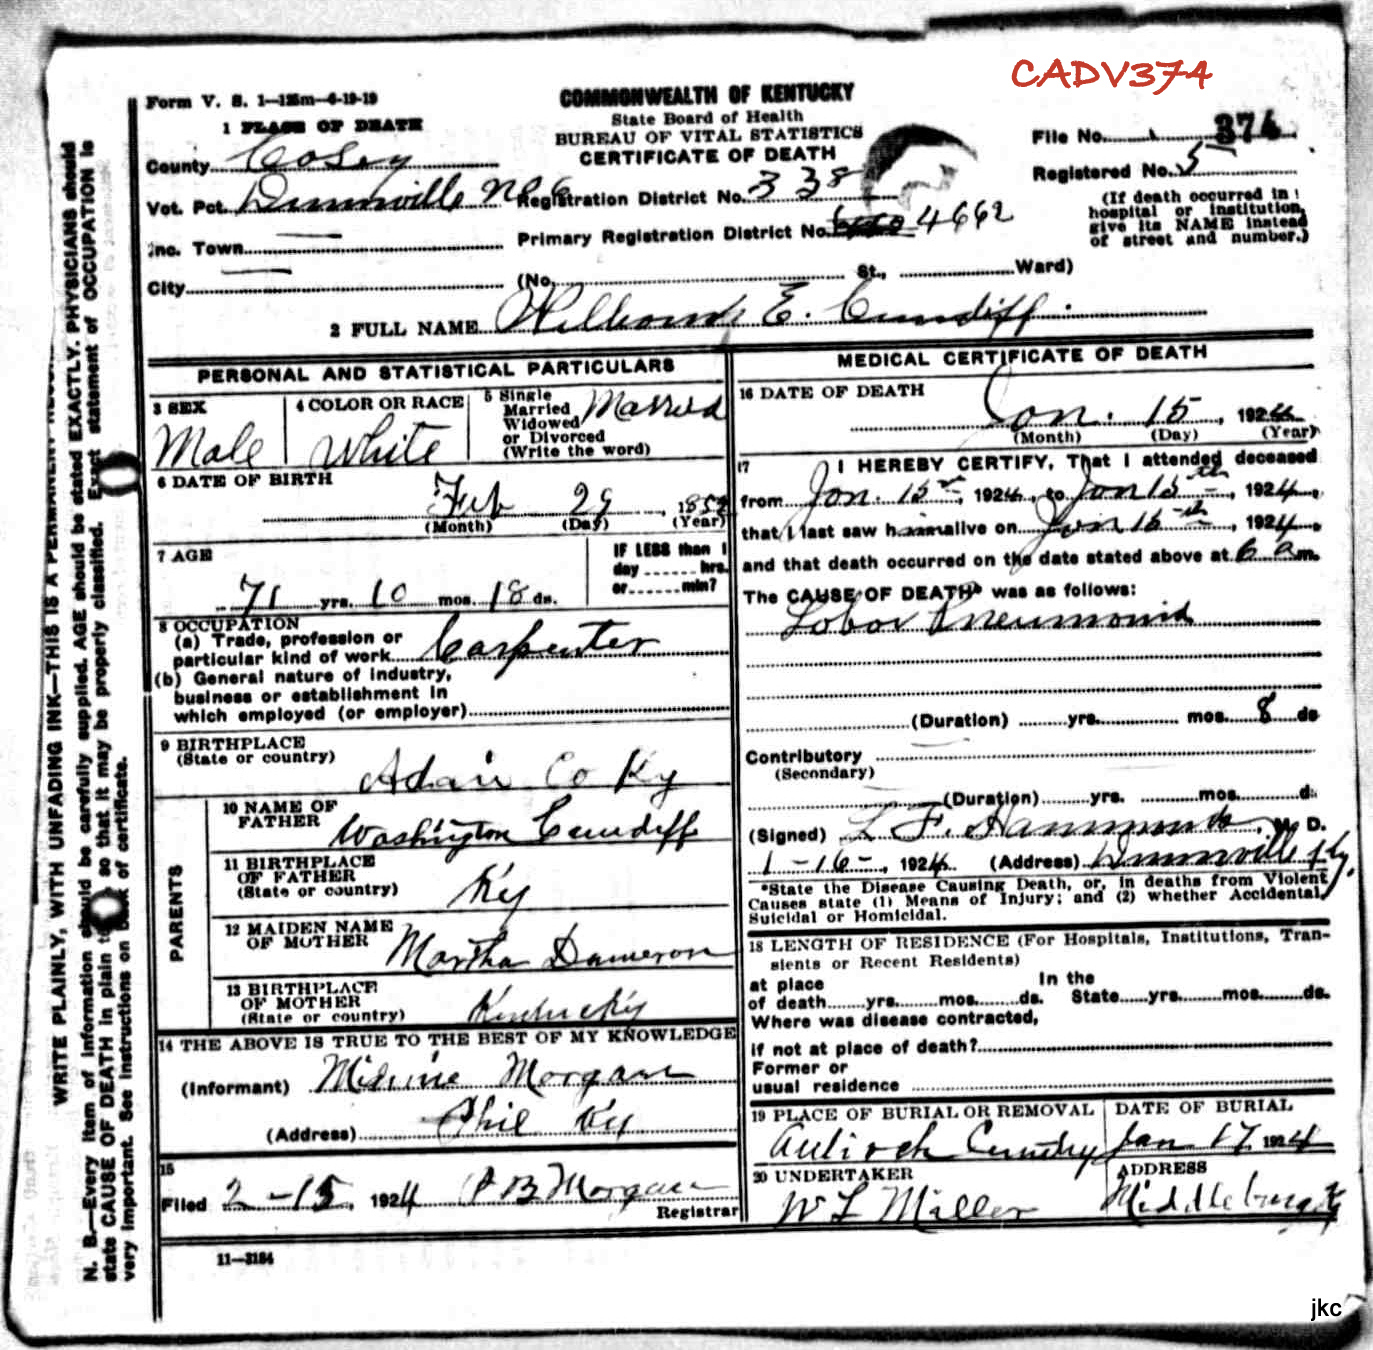 CADV374
Form V. S. 1—125m—4-19-19
COMMONWEALTH OF KENTUCKY
State Board of Health
BUREAU OF VITAL STATISTICS
CERTIFICATE OF DEATH
File No. 374
Registered No. 5
(If death occurred in
hospital or institution,
give its NAME instead
of street and number.)
1 PLACE OF DEATH
County Casey
Vot. Pct. Dunnville No 6 Registration District No. 338
Inc. Town Primary Registration District No. 4662
City (No. St., Ward)
2 FULL NAME E. Cundiff
PERSONAL AND STATISTICAL PARTICULARS
3 SEX
Male
4 COLOR OR RACE
White
5 Single
Married
Widowed
or Divorced
(Write the word)
Married
6 DATE OF BIRTH
Feb 29, 1852
(Month) (Day) (Year)
7 AGE
71 yrs. 10 mos. 18 ds.
IF LESS than 1
day hrs.
or min?
8 OCCUPATION
(a) Trade, profession or
particular kind of work Carpenter
(b) General nature of Industry,
business or establishment in
which employed (or employer)
9 BIRTHPLACE
(State or country)
Adair Co Ky
PARENTS
10 NAME OF
FATHER Washington Cundiff
11 BIRTHPLACE
OF FATHER
(State or country) Ky
12 MAIDEN NAME
OF MOTHER Martha Dameron
13 BIRTHPLACE
OF MOTHER
(State or country) Kentucky
14 THE ABOVE IS TRUE TO THE BEST OF MY KNOWLEDGE
(Informant) Morgan
(Address) Phil Ky
15
Filed 2-15, 1924 P B Morgan
Registrar
11—3184
MEDICAL CERTIFICATE OF DEATH
16 DATE OF DEATH
Jan. 15, 1924
(Month) (Day) (Year)
17 I HEREBY CERTIFY, That I attended deceased
from Jan. 15th, 1924, to Jan 15th, 1924,
that I last saw him alive on Jan 15th, 1924,
and that death occurred on the date stated above at 6 a m.
The CAUSE OF DEATH* was as follows:
Lobar Pneumonia
(Duration) yrs. mos. 8 ds
Contributory
(Secondary)
(Duration) yrs. mos. d
(Signed) L F. Hammonds, M. D.
1-16-, 1924 (Address) Dunnville Ky.
*State the Disease Causing Death, or, in deaths from Violent
Causes state (1) Means of Injury; and (2) whether Accidental,
Suicidal or Homicidal.
18 LENGTH OF RESIDENCE (For Hospitals, Institutions, Tran-
sients or Recent Residents)
at place In the
of death yrs. mos. ds. State yrs. mos. ds.
Where was disease contracted,
if not at place of death?
Former or
usual residence
19 PLACE OF BURIAL OR REMOVAL
Antioch Cemetery
DATE OF BURIAL
Jan 17 1924
20 UNDERTAKER
W L Miller
ADDRESS
Middleburg Ky
WRITE PLAINLY, WITH UNFADING INK—THIS IS A PERMANENT
N. B.—Every item of information should be carefully supplied. AGE should be stated EXACTLY. PHYSICIANS should
state CAUSE OF DEATH in plain so that it may be properly classified. Exact statement of OCCUPATION is
very important. See instructions on back of certificate.
jkc